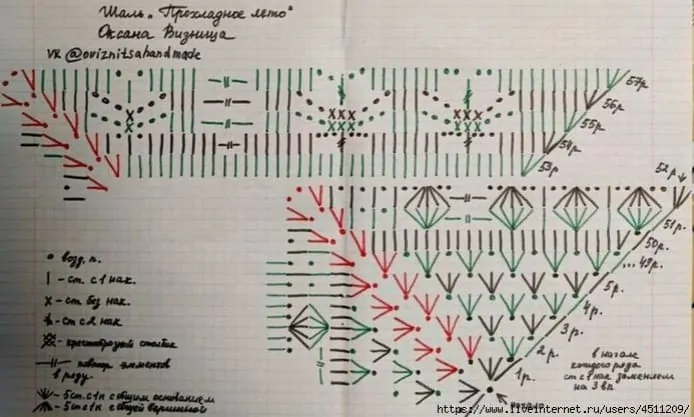 Шаль „Прохладное лето"
Оксана Визница
VK @oviznitsahandmade
57р.
56р.
55р.
54р.
53р.
52р.
51р.
50р.
...49р.
5р.
4р.
3р.
2р.
1р.
начало
в начале
каждого ряда
ст с 1 нак заменяем
на 3 вп
• возд. п.
| - ст. с 1 нак.
x - ст. без нак.
- ст с 2 нак
- крестообразный столбик
-//- - повтор элементов
в ряду
- 5 ст. с 1н с общим основанием
- 5 ст с 1н с общей вершиной
https://www.liveinternet.ru/users/4511209/